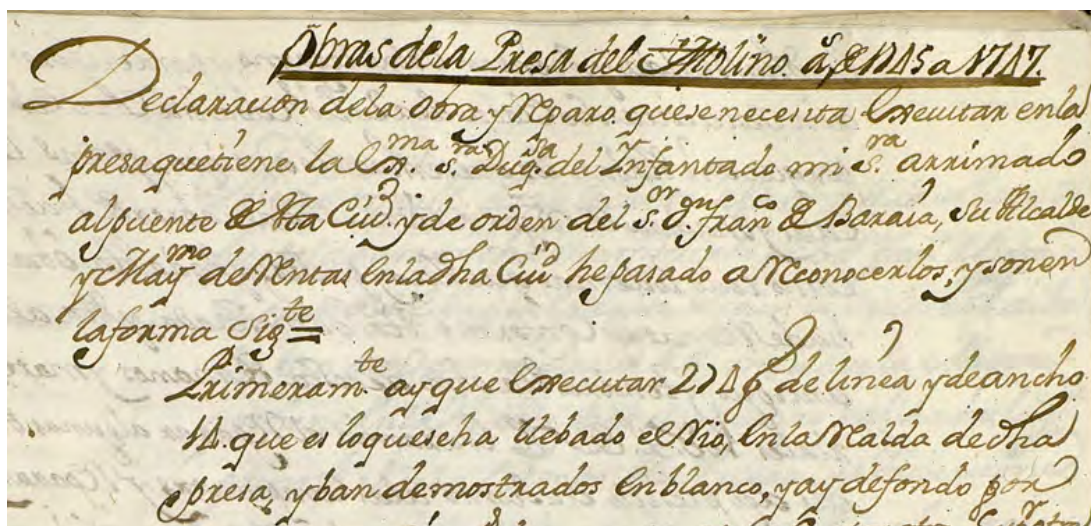 Obras dela Presa del Molino. a.s de 1745 a 1747.
Declaracion dela obra y Reparo. quese necesita Executar enla
presa quetiene la Ex.ma s.ra Duq.sa del Infantado mi s.ra arrimado
alpuente de sta Ciud. y de orden del s.or D.n Fran.co de Baraia, su Alcalde
y May.mo de Rentas Enla dha Ciud he pasado a Reconocerlos, y son en
la forma Sig.te =
Primeram.te ay que Executar 274 p.s de linea y de ancho
14. que es loqueseha llebado el Rio, Enla Realda de dha
presa, y ban demostrados En blanco, y ay defondo por